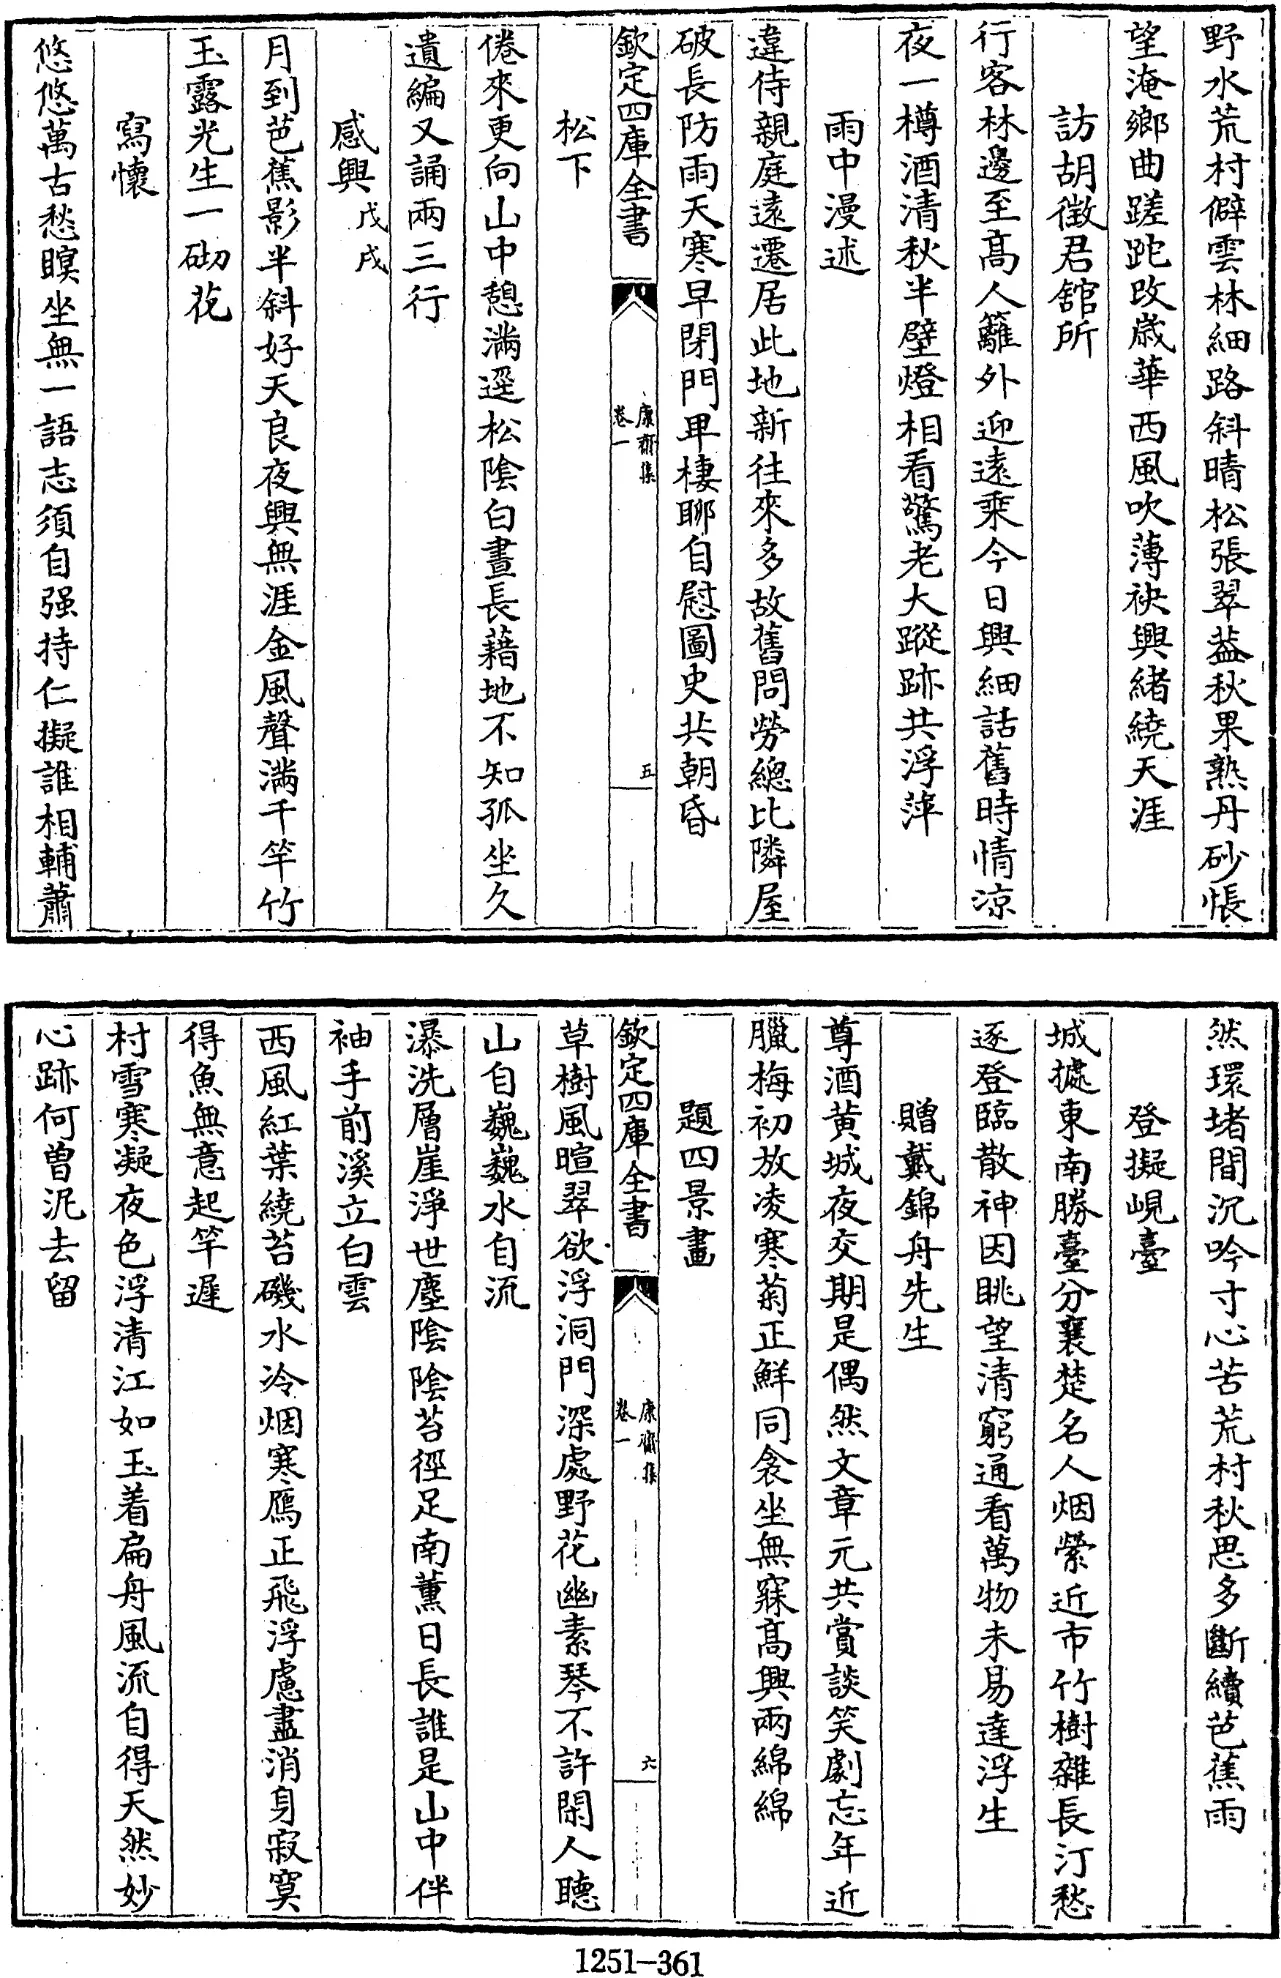 野水荒村僻雲林細路斜晴松張翠葢秋果熟丹砂悵
望淹鄉曲蹉跎改歲華西風吹薄袂興緒繞天涯
訪胡徵君舘所
行客林邊至高人籬外迎遠乘今日興細話舊時情涼
夜一樽酒清秋半壁燈相看驚老大蹤跡共浮萍
雨中漫述
違侍親庭遠遷居此地新往來多故舊問勞總比隣屋
破長防雨天寒早閉門卑棲聊自慰圖史共朝昏
欽定四庫全書
康齋集
卷一
五
松下
倦來更向山中憩滿逕松陰白晝長藉地不知孤坐久
遺編又誦兩三行
感興戊戌
月到芭蕉影半斜好天良夜興無涯金風聲滿千竿竹
玉露光生一砌花
寫懷
悠悠萬古愁瞑坐無一語志須自强持仁擬誰相輔蕭
然環堵間沉吟寸心苦荒村秋思多斷續芭蕉雨
登擬峴臺
城據東南勝臺分襄楚名人烟縈近市竹樹雜長汀愁
逐登臨散神因眺望清窮通看萬物未易達浮生
贈戴錦舟先生
尊酒黃城夜交期是偶然文章元共賞談笑劇忘年近
臘梅初放凌寒菊正鮮同衾坐無寐高興兩綿綿
題四景畫
欽定四庫全書
康齋集
卷一
六
草樹風暄翠欲浮洞門深處野花幽素琴不許閑人聽
山自巍巍水自流
瀑洗層崖淨世塵陰陰苔徑足南薰日長誰是山中伴
袖手前溪立白雲
西風紅葉繞苔磯水冷烟寒鴈正飛浮慮盡消身寂寞
得魚無意起竿遲
村雪寒凝夜色浮清江如玉着扁舟風流自得天然妙
心跡何曾泥去留
1251-361